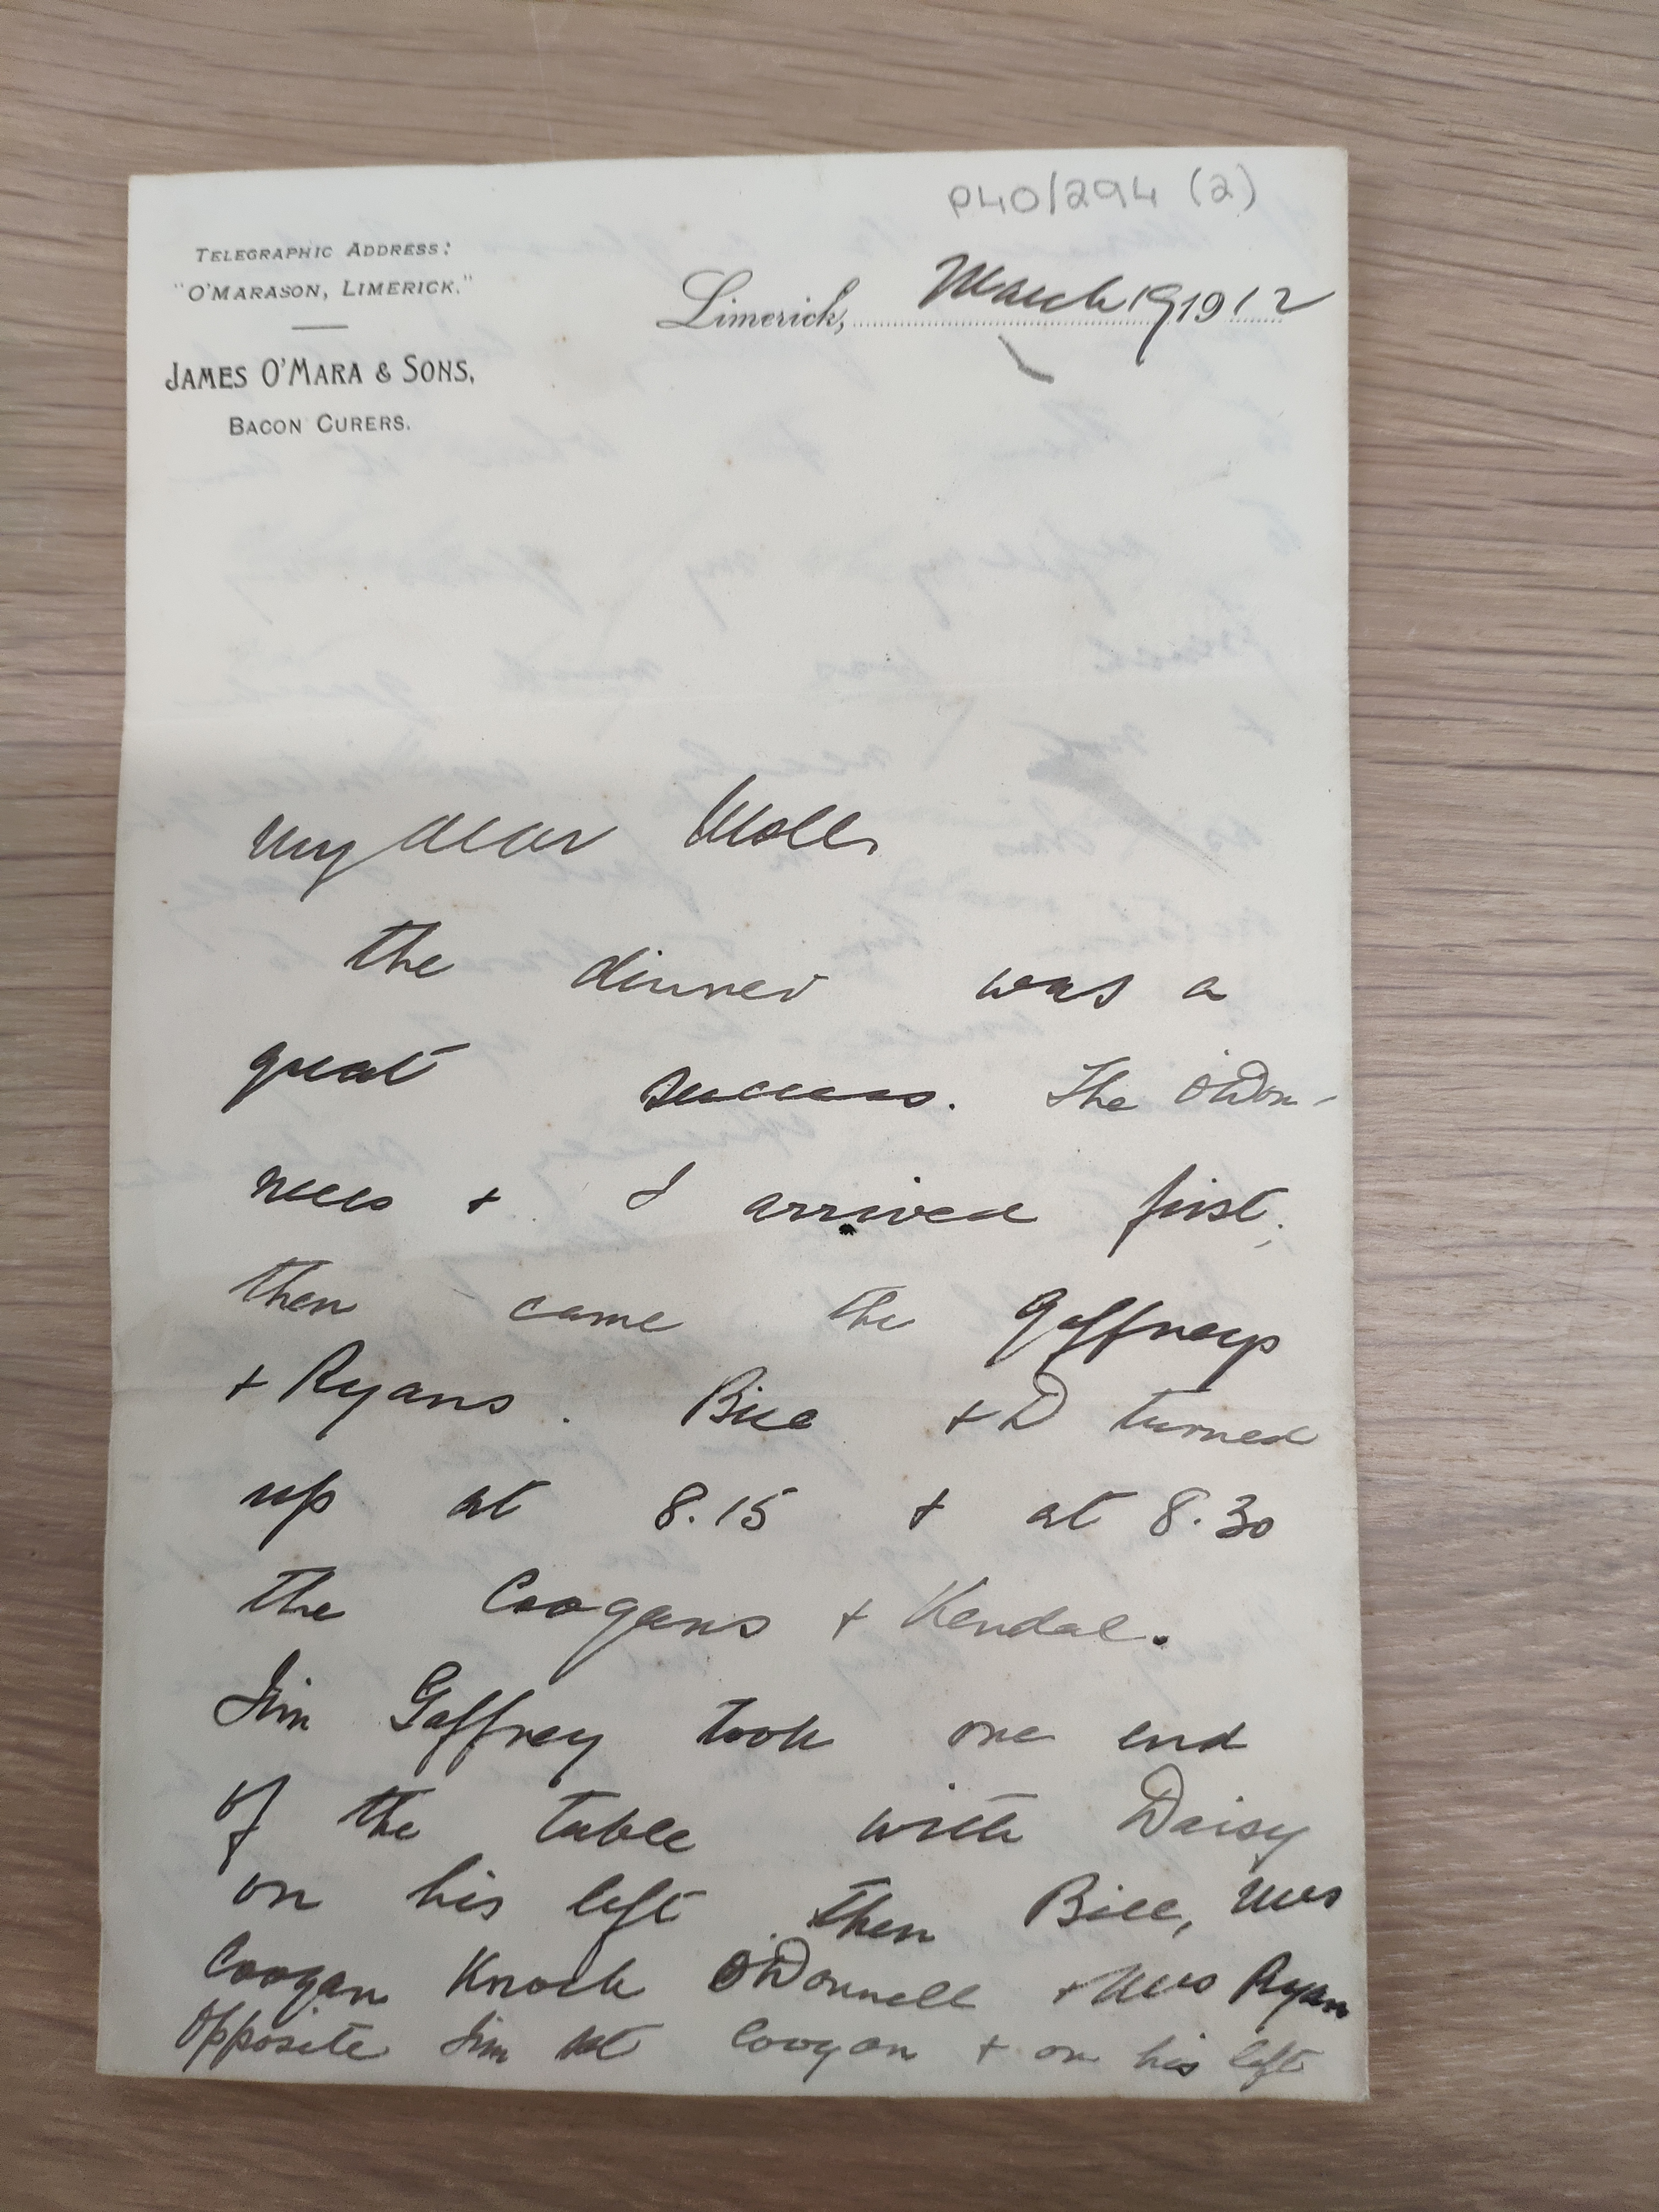 P40/294 (2)
TELEGRAPHIC ADDRESS:
"O'MARASON, LIMERICK."
JAMES O'MARA & SONS,
BACON CURERS.
Limerick, March 19 1912
My dear Moll,
the dinner was a
great success. The O'Don-
nells + I arrived first;
then came the Gaffneys
+ Ryans. Bill + D turned
up at 8.15 + at 8.30
the Coogans + Kendal.
Jim Gaffney took one end
of the table with Daisy
on his left then Bill, Mrs
Coogan Knock O'Donnell + Mrs Ryan
opposite Jim sat Coogan + on his left